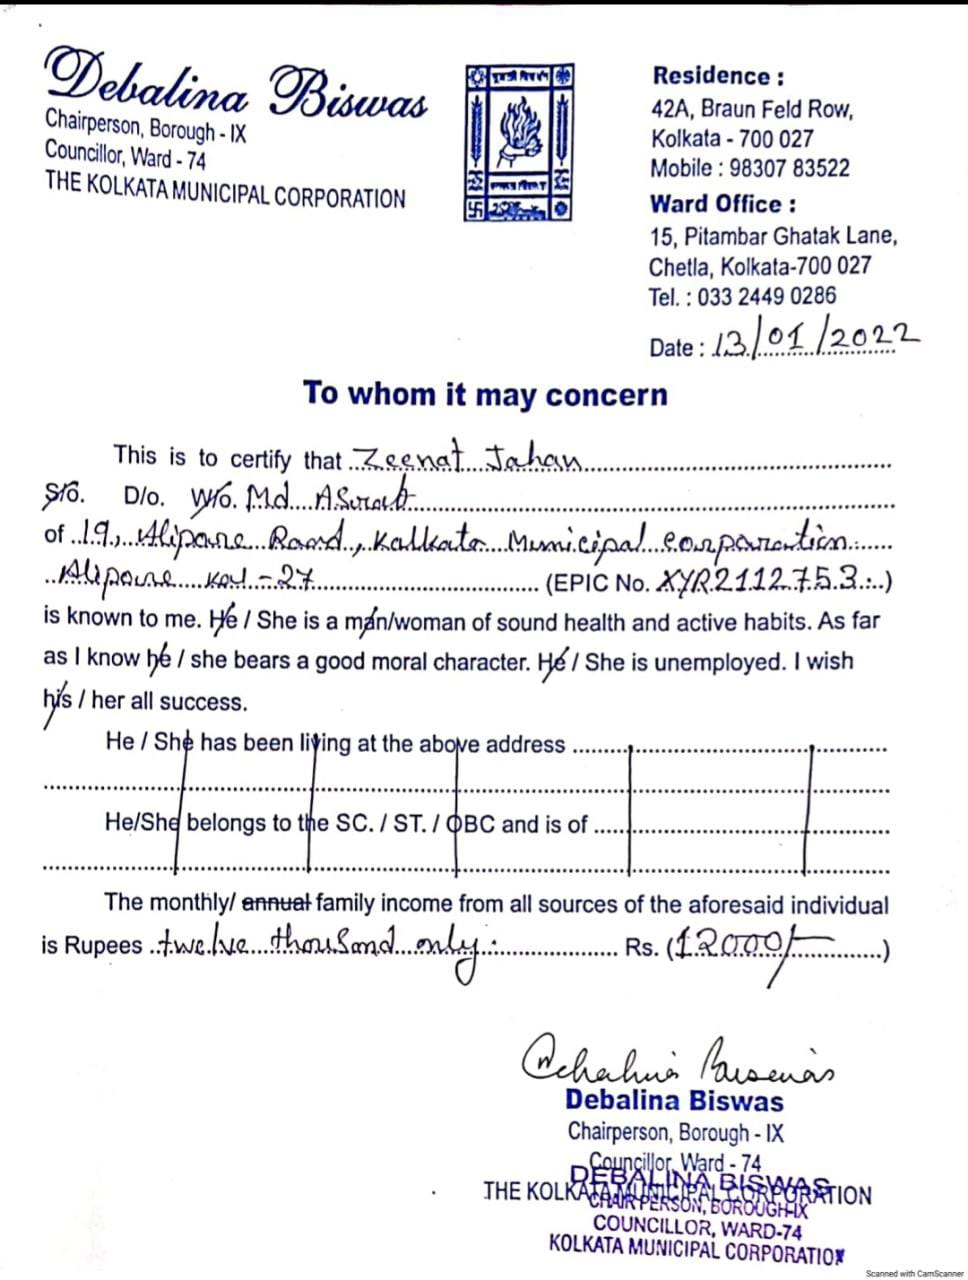 Debalina Biswas
Chairperson, Borough - IX
Councillor, Ward - 74
THE KOLKATA MUNICIPAL CORPORATION
Residence :
42A, Braun Feld Row,
Kolkata - 700 027
Mobile : 98307 83522
Ward Office :
15, Pitambar Ghatak Lane,
Chetla, Kolkata-700 027
Tel. : 033 2449 0286
Date : 13/01/2022
To whom it may concern
This is to certify that Zeenat Jahan
S/o. D/o. W/o. Md ASurab
of 19, Alipore Road, Kalkata Municipal corporation
Alipore kol - 27 (EPIC No. XYR2112753)
is known to me. He / She is a man/woman of sound health and active habits. As far
as I know he / she bears a good moral character. He / She is unemployed. I wish
his / her all success.
He / She has been living at the above address
He/She belongs to the SC. / ST. / OBC and is of
The monthly/ annual family income from all sources of the aforesaid individual
is Rupees twelve thousand only. Rs. (12000/-)
Debalina Biswas
Debalina Biswas
Chairperson, Borough - IX
Councillor, Ward - 74
THE KOLKATA MUNICIPAL CORPORATION
DEBALINA BISWAS
CHAIRPERSON, BOROUGH-IX
COUNCILLOR, WARD-74
KOLKATA MUNICIPAL CORPORATION
Scanned with CamScanner